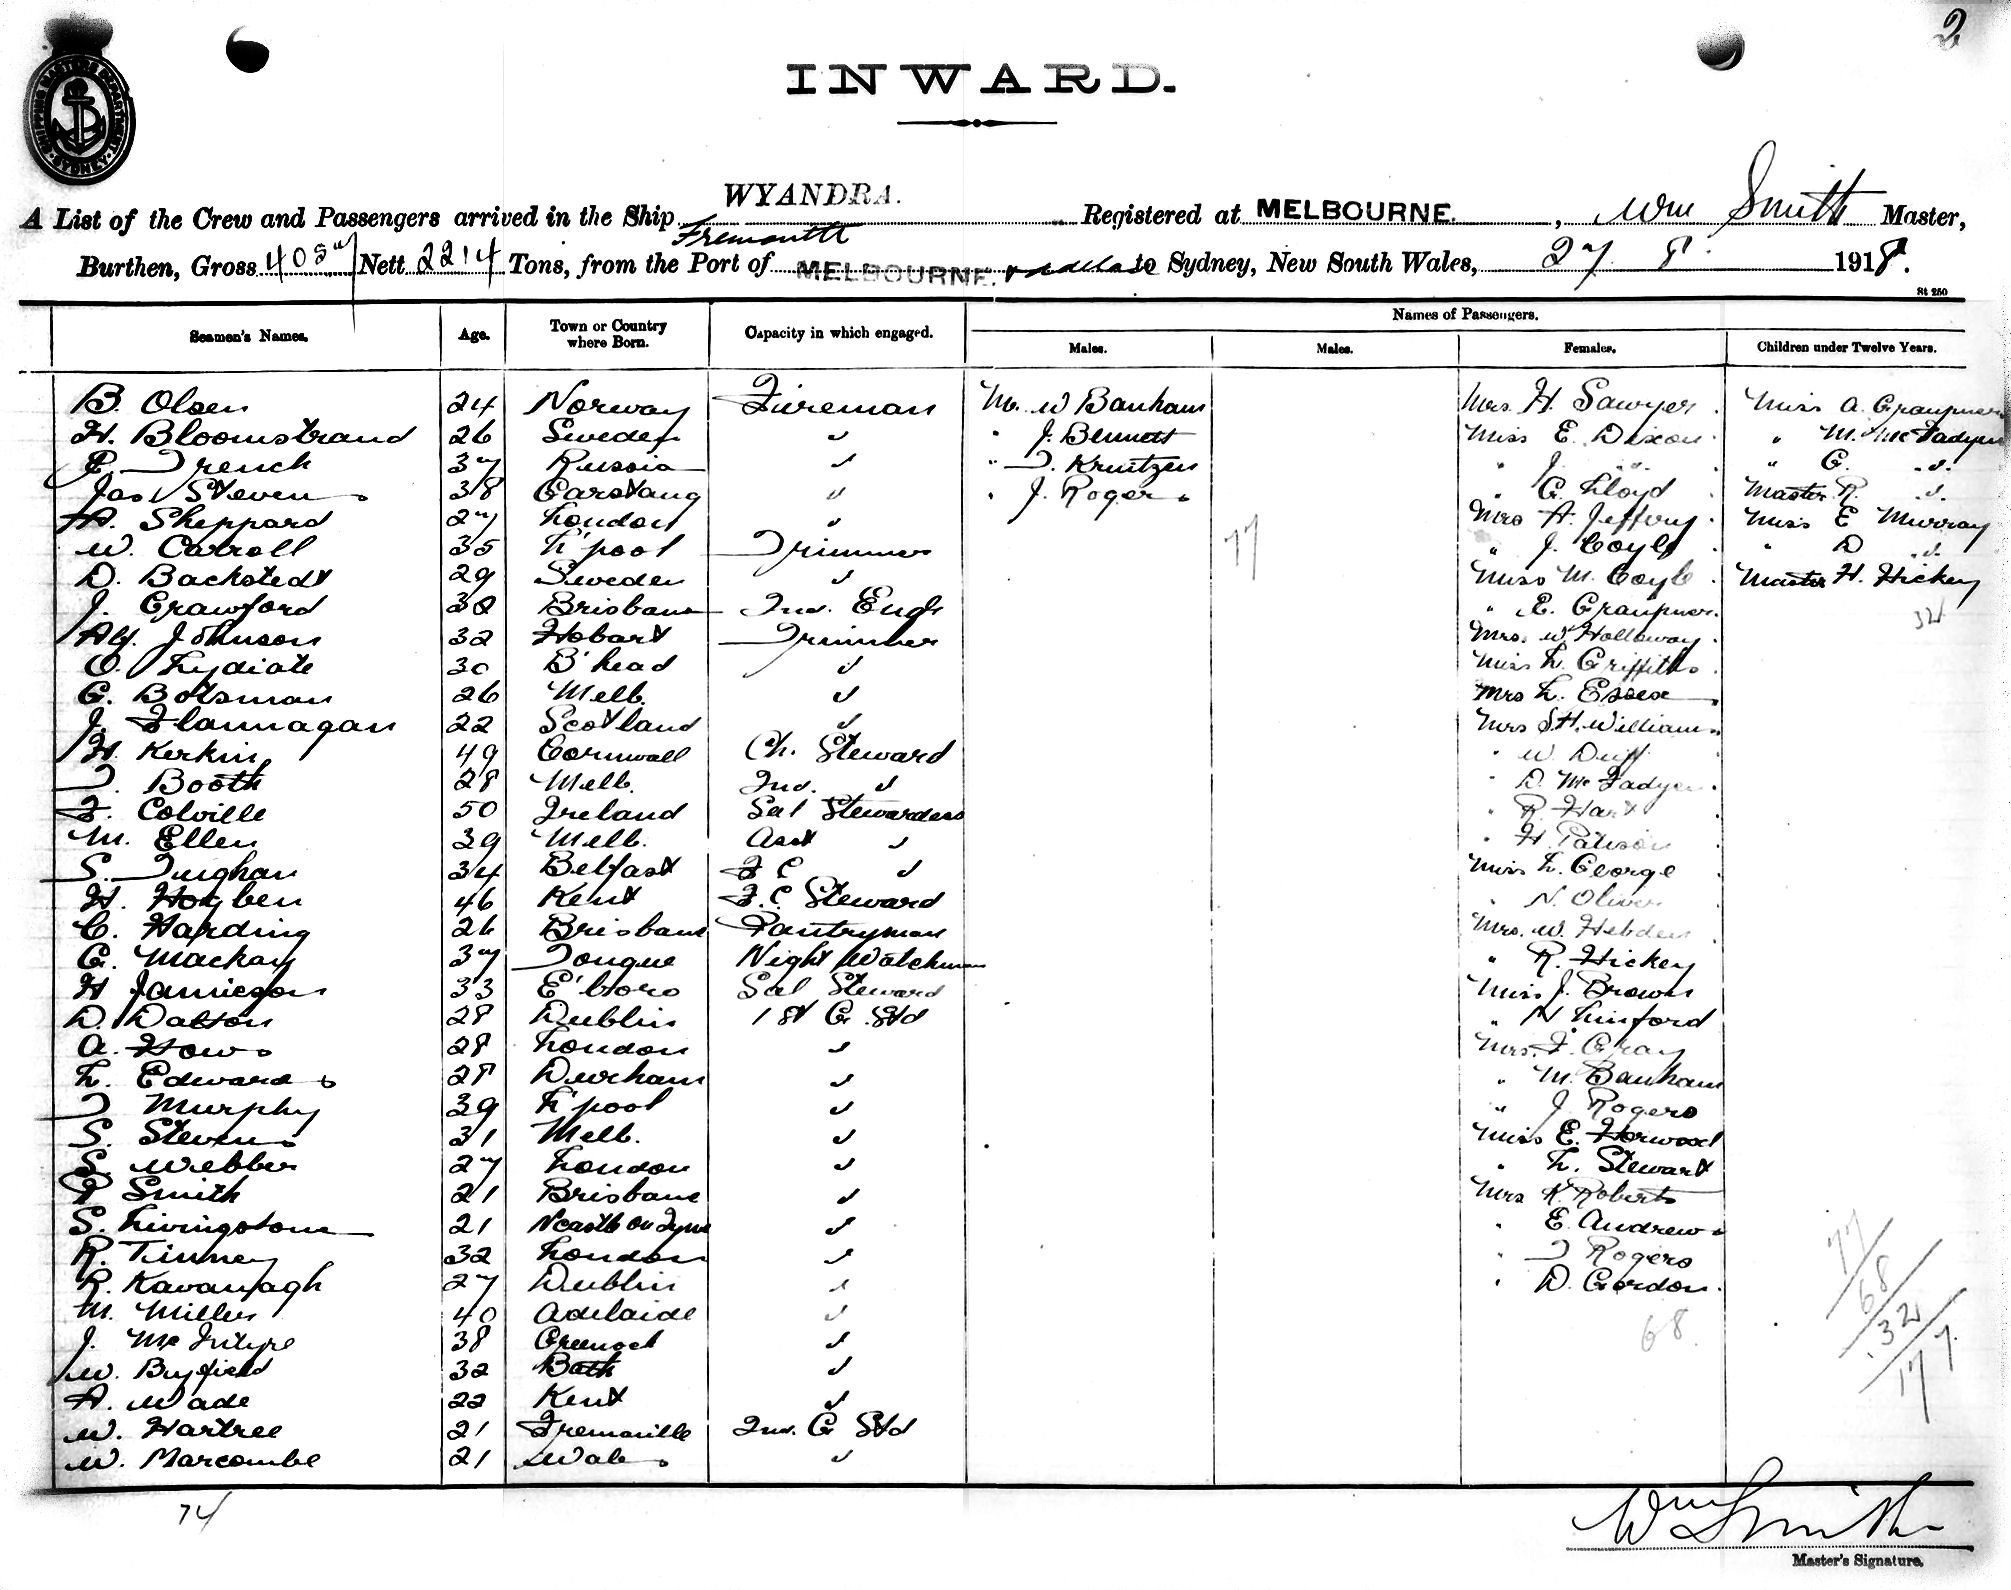 2
SHIPPING MASTERS DEPARTMENT SYDNEY
INWARD.
A List of the Crew and Passengers arrived in the Ship WYANDRA. Registered at MELBOURNE. , Wm Smith Master,
Fremantle
Burthen, Gross 4057 Nett 2214 Tons, from the Port of MELBOURNE. to Sydney, New South Wales, 27. 8. 1918.
St 250
Names of Passengers.
Seamen's Names. Age. Town or Country where Born. Capacity in which engaged. Males. Males. Females. Children under Twelve Years.
B. Olsen 24 Norway Fireman Mr. W Banham Mrs. H. Sawyer. Miss A. Graupner
H. Bloomstrand 26 Sweden " " J. Bennett Miss E. Dixon. " M. McFadyen
P. Trench 37 Russia " " T. Kruitzen " J. " " G. "
Jas Stevens 38 Garstang " " J. Rogers " G. Lloyd Master R. "
A. Sheppard 27 London " Mrs A. Jeffery. Miss E Murray
W. Carroll 35 L'pool Trimmer " J. Coyle " D "
D. Backstedt 29 Sweden " Miss M. Coyle. Master H. Hickey
J. Crawford 30 Brisbane 2nd. Engr " E. Graupner.
77
32
Alf. Johnson 32 Hobart Trimmer Mrs. W Holloway.
O. Lydiate 30 B'head " Miss L. Griffiths
G. Botsman 26 Melb. " Mrs L. Essex
J. Flannagan 22 Scotland " Mrs S.H. Williams
H. Kerkin 49 Cornwall Ch. Steward " W. Duff
T. Booth 28 Melb. 2nd. " " D. McFadyen.
F. Colville 50 Ireland Sal Stewardess " R. Hart
M. Ellen 39 Melb. Asst " " H. Patison
S. Tughan 34 Belfast F C " Miss L. George
H. Hogben 46 Kent F.C. Steward " N. Oliver
C. Harding 26 Brisbane Pantryman Mrs. W. Hebden
G. Mackay 37 Tongue Night Watchman " R. Hickey
H Jamieson 33 E'boro Sal Steward Miss J. Brown
D. Dalton 28 Dublin 1st C. Std " N Linford
A. Hows 28 London " Mrs. F. Gray
L. Edwards 28 Durham " " M. Banham
T Murphy 39 L'pool " " J. Rogers
S. Stevens 31 Melb. " Miss E. Horwood
S. Webber 27 London " " L. Stewart
P Smith 21 Brisbane " Mrs K. Roberts
S. Livingstone 21 Ncastle on Tyne " " E. Andrews
R. Tinney 32 London " " T Rogers
R. Kavanagh 27 Dublin " " D. Gordon.
M. Miller 40 Adelaide "
J. McIntyre 38 Greenock "
W. Byfield 32 Bath "
A. Wade 22 Kent "
W. Hartree 21 2nd. C Std
W. Marcombe 21 Wales "
68.
77
68
32
177
74
Wm Smith
Master's Signature.